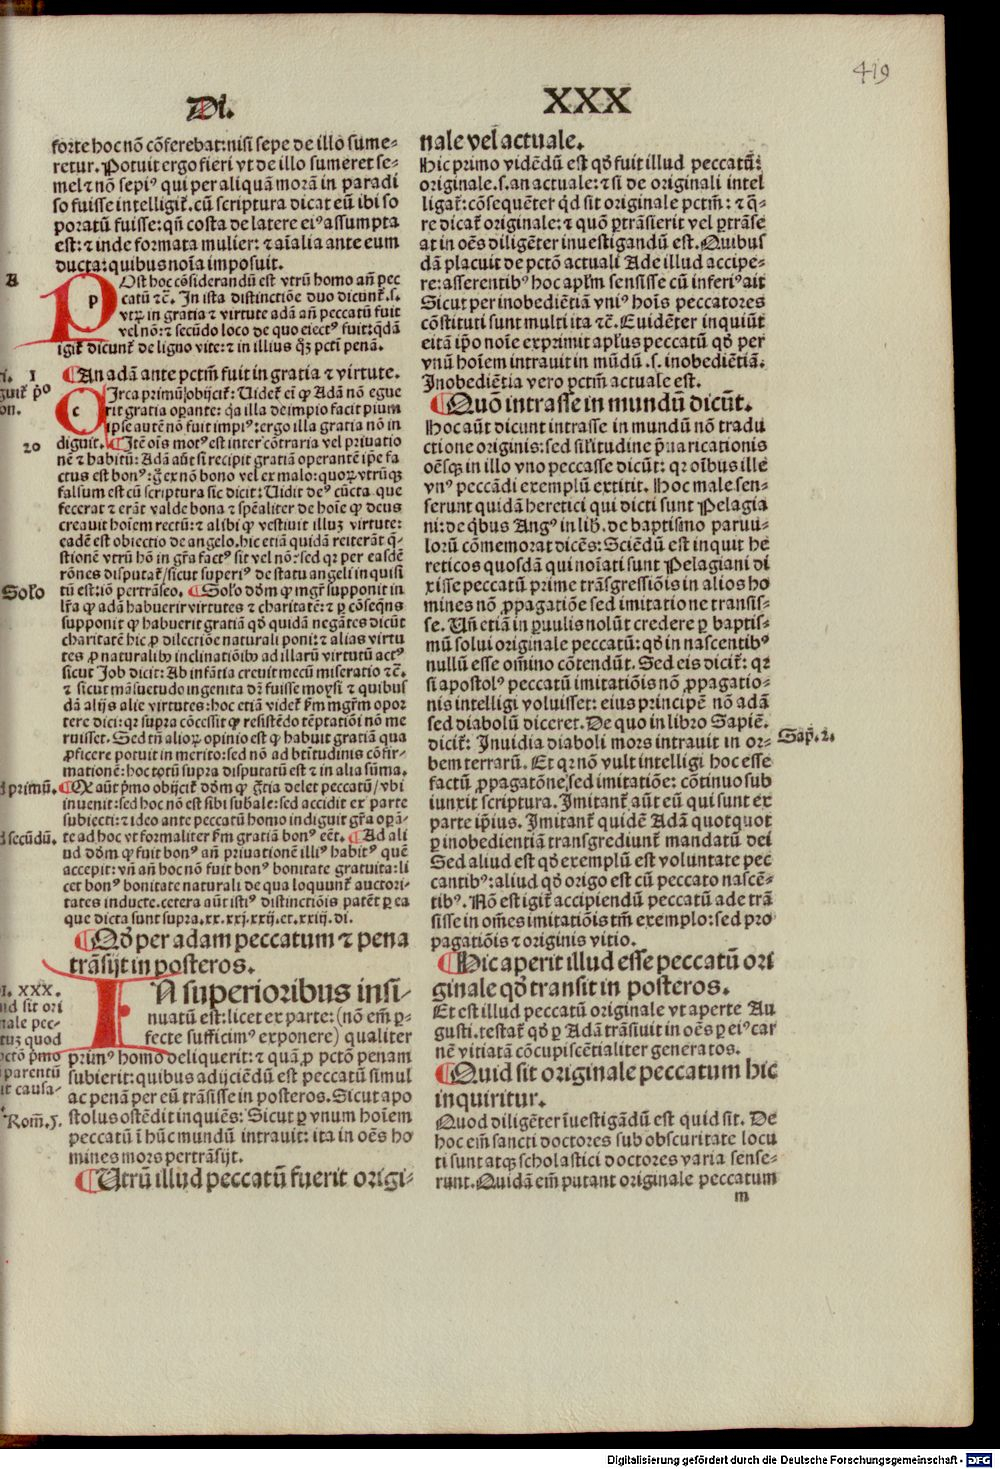 419
Di. XXX
forte hoc nō cōferebat: nisi sepe de illo sume-
retur. Potuit ergo fieri vt de illo sumeret se-
mel ⁊ nō sepiꝰ qui per aliquā morā in paradi
so fuisse intelligit᷑. cū scriptura dicat eū ibi so
poratū fuisse: qn̄ costa de latere eiꝰ assumpta
est: ⁊ inde formata mulier: ⁊ aīalia ante eum
ducta: quibus noīa imposuit.
A
POst hoc cōsiderandū est vtrū homo an̄ pec
catū ⁊c̄. In ista distinctiōe duo dicunt᷑. s.
vtꝝ in gratia ⁊ virtute adā an̄ peccatū fuit
vel nō: ⁊ secūdo loco de quo eiectꝰ fuit: q̄dā
igit᷑ dicunt᷑ de ligno vite: ⁊ in illius q̄ꝫ pctī penā.
¶ An adā ante pctm̄ fuit in gratia ⁊ virtute.
CIrca primū obijcit᷑: Uidet᷑ em̄ ꝙ Adā nō egue
rit gratia oꝑante: q̇a illa de impio facit pium
ipse autē nō fuit impiꝰ: ergo illa gratia nō in
20
diguit. ¶ Itē oīs motꝰ est inter cōtraria vel priuatio
nē ⁊ habitū: Adā aūt si recipit gratiā operantē ip̄e fa
ctus est bonꝰ: g̊ ex nō bono vel ex malo: quoꝝ vtrūqꝫ
falsum est cū scriptura sic dicit: Uidit deꝰ cūcta que
fecerat ⁊ erāt valde bona ⁊ spēaliter de hoīe ꝙ deus
creauit hoīem rectū: ⁊ alibi ꝙ vestiuit illuꝫ virtute:
eadē est obiectio de angelo. hic etiā quidā reiterāt q̄-
stionē vtrū hō in gr̄a factꝰ sit vel nō: sed qꝛ per easdē
rōnes disputat᷑/ sicut superiꝰ de statu angeli inquisi
tū est: iō pertrāseo. ¶ Solo dōm ꝙ mgr̄ supponit in
Solo
lr̄a ꝙ adā habuerit virtutes ⁊ charitatē: ⁊ ꝑ cōseq̄ns
supponit ꝙ habuerit gratiā qd̄ quidā negātes dicūt
charitatē hic ꝓ dilectiōe naturali poni: ⁊ alias virtu
tes ꝓ naturalibꝰ inclinatiōibꝰ ad illarū virtutū actꝰ
sicut Job dicit: Ab infātia creuit mecū miseratio ⁊c̄.
⁊ sicut māsuetudo ingenita dr̄ fuisse moysi ⁊ quibus
dā alijs alie virtutes: hoc etiā videt᷑ fm̄ mgr̄m opor
tere dici: qꝛ supra cōcessit ꝙ resistēdo tēptatiōi nō me
ruisset. Sed tn̄ alioꝝ opinio est ꝙ habuit gratiā qua
ꝓficere potuit in merito: sed nō ad bt̄itudinis cōfir-
mationē: hoc totū supra disputatū est ⁊ in alia sūma.
d primū.
¶ Qꝛ aūt p̄mo obijcit᷑ dōm ꝙ gr̄tia delet peccatū/ vbi
inuenit: sed hoc nō est sibi sub̄ale: sed accidit ex parte
subiecti: ⁊ ideo ante peccatū homo indiguit gr̄a oꝑā-
te ad hoc vt formaliter fm̄ gratiā bonꝰ eēt. ¶ Ad ali
d secūdū.
ud dōm ꝙ fuit bonꝰ an̄ priuationē illiꝰ habitꝰ quē
accepit: vn̄ an̄ hoc nō fuit bonꝰ bonitate gratuita: li
cet bonꝰ bonitate naturali de qua loquunt᷑ auctori-
tates inducte. cetera aūt istiꝰ distinctiōis patēt ꝑ ea
que dicta sunt supra. xx. xxj. xxij. et. xxiij. di.
¶ Qd̄ per adam peccatum ⁊ pena
trāsijt in posteros.
IN superioribus insi-
nuatū est: licet ex parte: (nō em̄ ꝑ-
fecte sufficimꝰ exponere) qualiter
primꝰ homo deliquerit: ⁊ quā ꝓ pctō penam
subierit: quibus adijciēdū est peccatū simul
ac penā per eū trāsisse in posteros. Sicut apo
stolus ostēdit inquiēs: Sicut ꝑ vnum hoīem
Rom̄. 5.
peccatū ī hūc mundū intrauit: ita in oēs ho
mines mors pertrāsijt.
¶ Utrū illud peccatū fuerit origi-
nale vel actuale.
Hic primo vidēdū est qd̄ fuit illud peccatū:
originale. s. an actuale: ⁊ si de originali intel
ligat᷑: cōsequēter qd̄ sit originale pctm̄: ⁊ q̄-
re dicat᷑ originale: ⁊ quō ꝑtrāsierit vel ꝑtrāse
at in oēs diligēter inuestigandū est. Quibus
dā placuit de pctō actuali Ade illud accipe-
re: asserentibꝰ hoc apl̄m sensisse cū inferiꝰ ait
Sicut per inobediētiā vniꝰ hoīs peccatores
cōstituti sunt multi ita ⁊c̄. Euidēter inquiūt
eitā ip̄o noīe exprimit apl̄us peccatū qd̄ per
vnū hoīem intrauit in mūdū. s. inobediētiā.
Inobediētia vero pctm̄ actuale est.
¶ Quō intrasse in mundū dicūt.
Hoc aūt dicunt intrasse in mundū nō tradu
ctione originis: sed silītudine p̄uaricationis
oēsqꝫ in illo vno peccasse dicūt: qꝛ oībus ille
vnꝰ peccādi exemplū extitit. Hoc male sen-
serunt quidā heretici qui dicti sunt Pelagia
ni: de q̇bus Augꝰ in lib̄. de baptismo paruu-
lorū cōmemorat dicēs: Sciēdū est inquit he
reticos quosdā qui noīati sunt Pelagiani di
xisse peccatū prime trāsgressiōis in alios ho
mines nō ꝓpagatiōe sed imitatione transis-
se. Un̄ etiā in ꝑuulis nolūt credere ꝑ baptis-
mū solui originale peccatū: qd̄ in nascentibꝰ
nullū esse om̄ino cōtendūt. Sed eis dicit᷑: qꝛ
si apostolꝰ peccatū imitatiōis nō ꝓpagatio-
nis intelligi voluisset: eius principē nō adā
sed diabolū diceret. De quo in libro Sapiē.
dicit᷑: Inuidia diaboli mors intrauit in or-
Sap̄. 2.
bem terrarū. Et qꝛ nō vult intelligi hoc esse
factū ꝓpagatōne, sed imitatiōe: cōtinuo sub
iunxit scriptura. Imitant᷑ aūt eū qui sunt ex
parte ip̄ius. Imitant᷑ quidē Adā quotquot
ꝑ inobedientiā transgrediunt᷑ mandatū dei
Sed aliud est qd̄ exemplū est voluntate pec
cantibꝰ: aliud qd̄ origo est cū peccato nascē-
tibꝰ. Nō est igit᷑ accipiendū peccatū ade trā
sisse in om̄es imitatiōis tm̄ exemplo: sed pro
pagatiōis ⁊ originis vitio.
¶ Hic aperit illud esse peccatū ori
ginale qd̄ transit in posteros.
Et est illud peccatū originale vt aperte Au
gusti. testat᷑ qd̄ ꝑ Adā trāsiuit in oēs ꝑ eiꝰ car
nē vitiatā cōcupiscētialiter generatos.
¶ Quid sit originale peccatum hic
inquiritur.
Quod diligēter īuestigādū est quid sit. De
hoc em̄ sancti doctores sub obscuritate locu
ti sunt atqꝫ scholastici doctores varia sense-
runt. Quidā em̄ putant originale peccatum
m
Digitalisierung gefördert durch die Deutsche Forschungsgemeinschaft - DFG